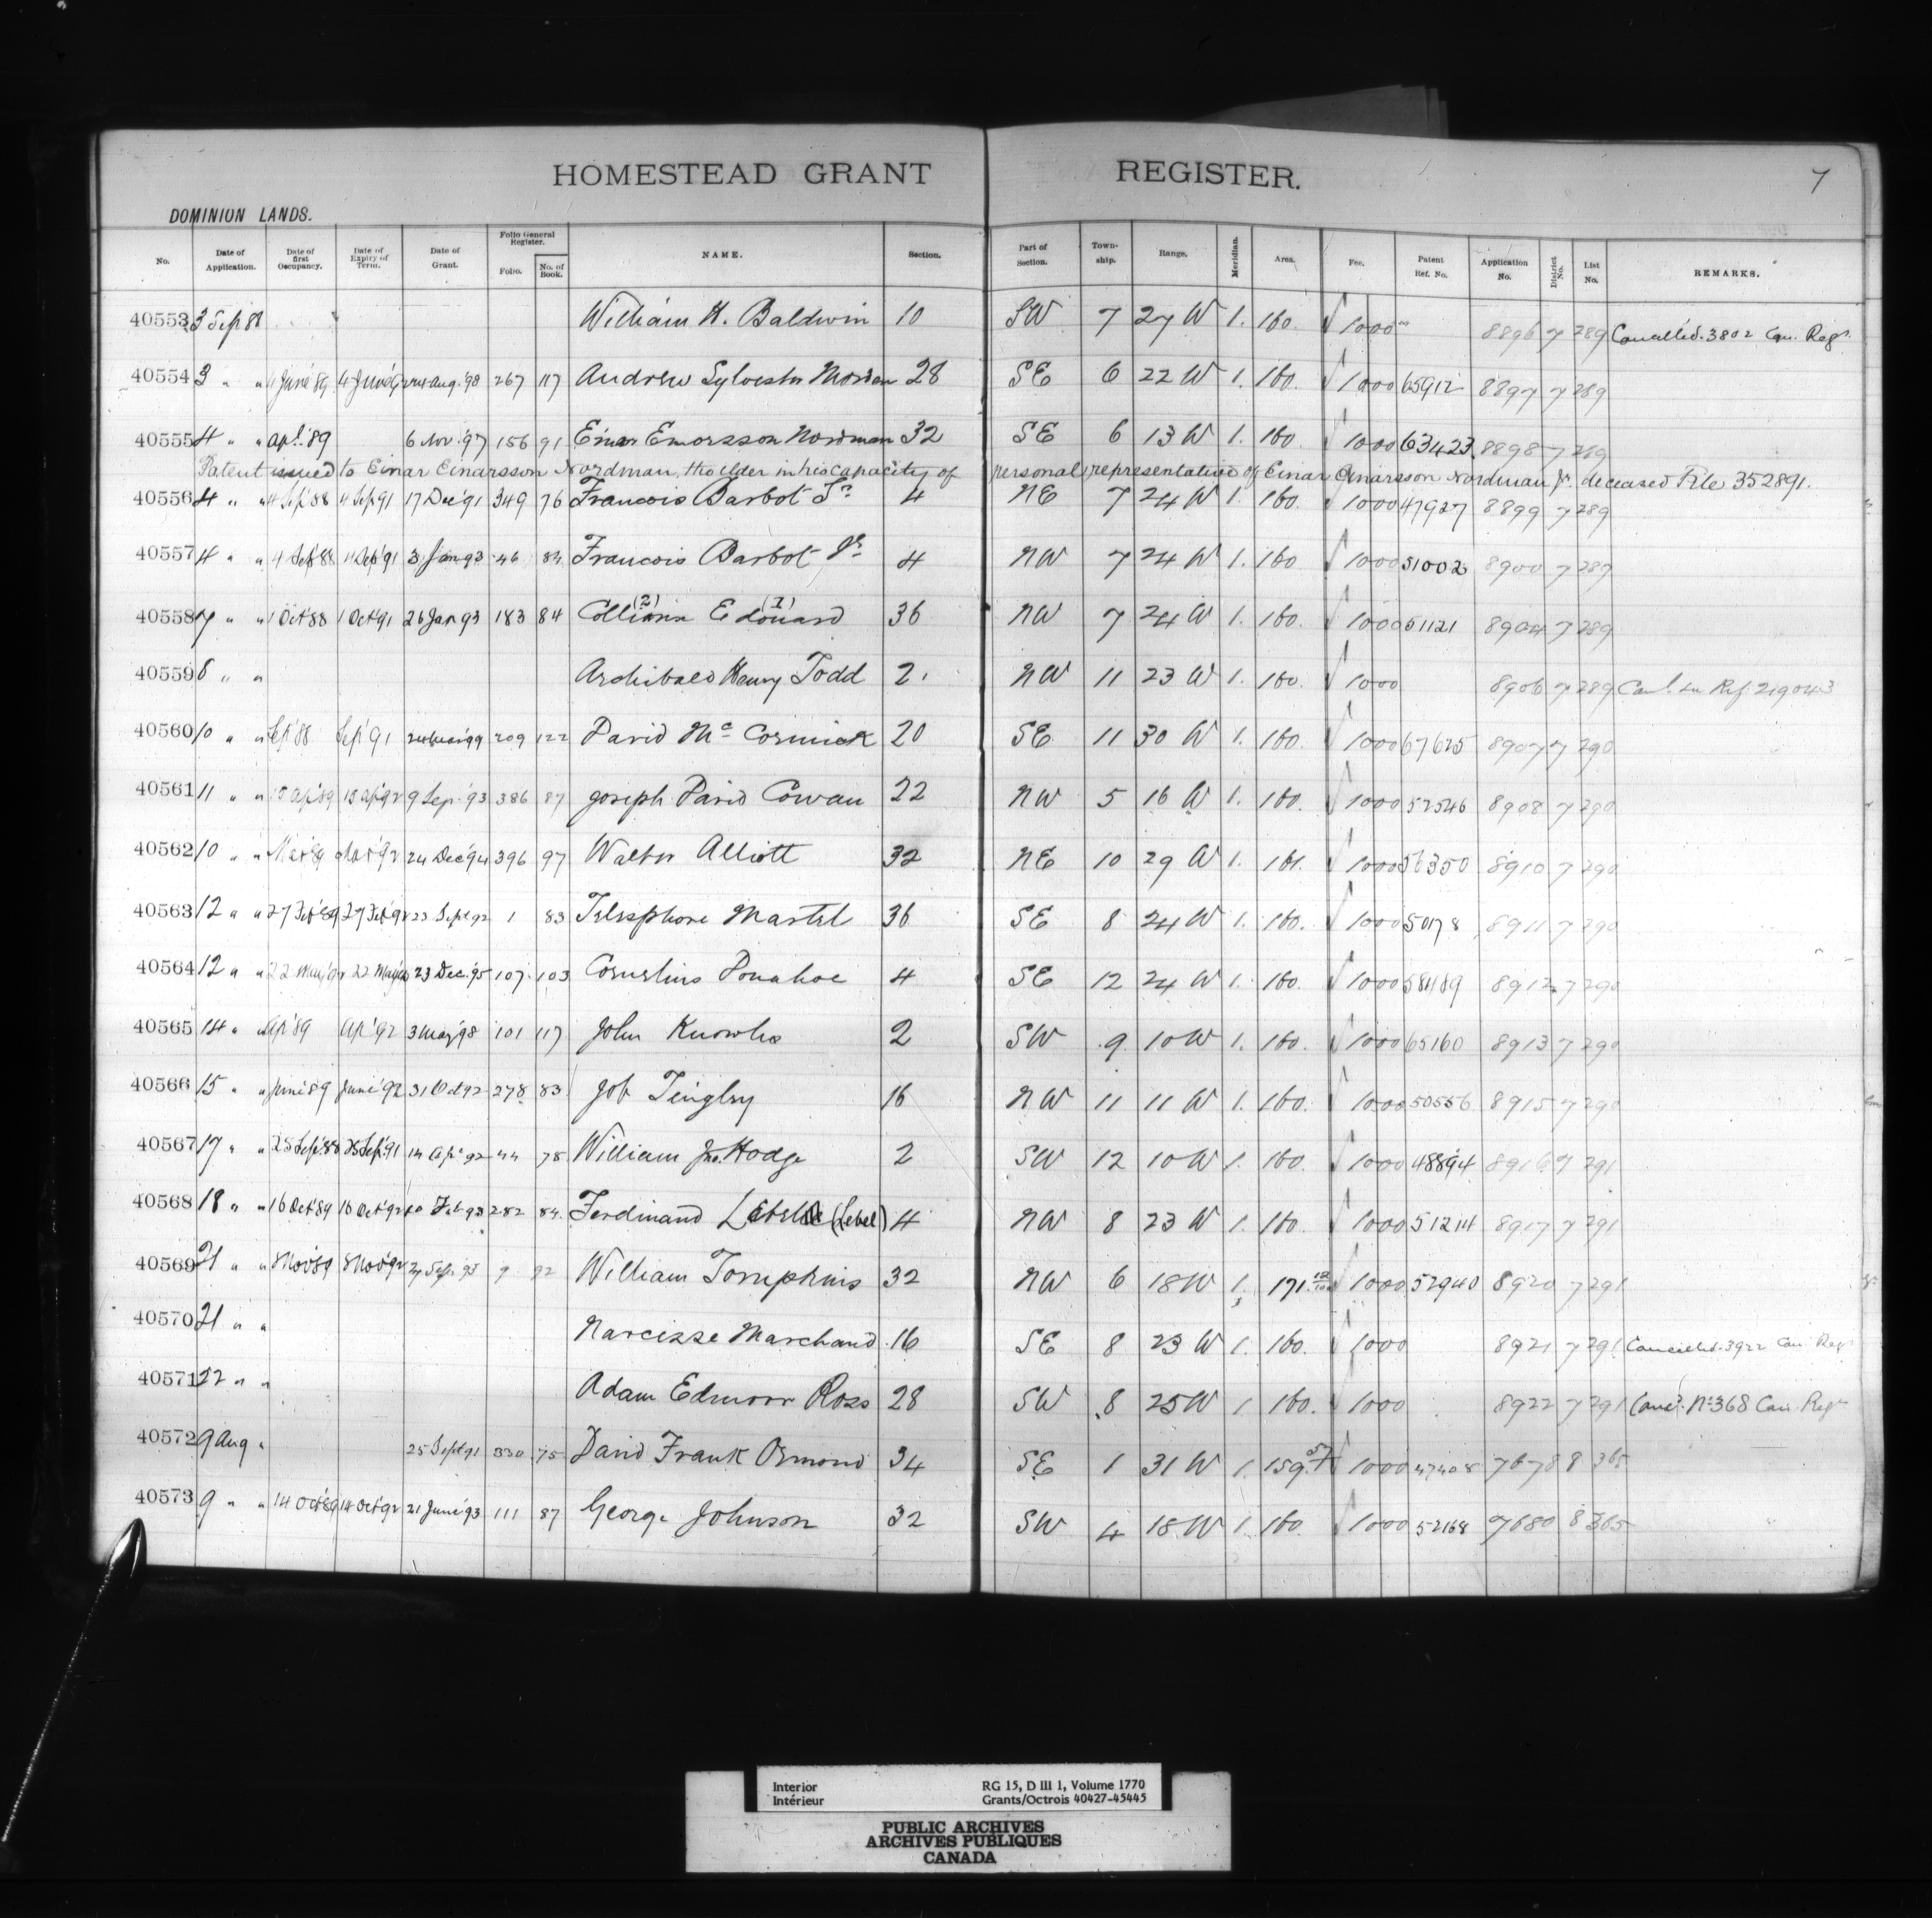 HOMESTEAD GRANT REGISTER. 7
DOMINION LANDS.
No. Date of Application. Date of first Occupancy. Date of Expiry of Term. Date of Grant. Folio General Register. Folio. No. of Book. NAME. Section. Part of Section. Town-ship. Range. Meridian. Area. Fee. Patent Ref. No. Application No. District No. List No. REMARKS.
40553 3 Sep 88 William H. Baldwin 10 SW 7 27 W 1. 160. √ 1000 8896 7 289 Cancelled. 3802 Can. Regr.
40554 3 " " 4 June '89 267 117 Andrew Sylvester Morden 28 SE 6 22 W 1. 160. √ 1000 65912 8897 7 289
40555 4 " " Apl. '89 6 Nov. '97 156 91 Einar Emorsson Nordman 32 SE 6 13 W 1. 160. √ 1000 63423 8898 7 289
Patent issued to Einar Einarsson Nordman, the elder in his capacity of personal representative of Einar Einarsson Nordman Jr. deceased File 352891.
40556 4 " " 4 Sep 88 4 Sep 91 17 Dec '91 349 76 Francois Barbot Sr. 4 NE 7 24 W 1. 160. 1000 47927 8899 7 289
40557 4 " " 4 Sep '88 4 Sep 91 3 Jan 93 46 84 Francois Barbot Jr. 4 NW 7 24 W 1. 160 √ 1000 51002 8900 7 289
40558 7 " " 1 Oct 88 1 Oct 91 26 Jan 93 183 84 (2) Edouard (1) 36 NW 7 24 W 1. 160. √ 1000 51121 8904 7 289
40559 8 " " Archibald Henry Todd 2. NW 11 23 W 1. 160. √ 1000 8906 7 289 Ref. 219043
40560 10 " " Sep '88 Sep '91 209 122 David Mc Cormick 20 SE 11 30 W 1. 160. √ 1000 67625 8907 7 290
40561 11 " " 15 Ap '89 15 Ap '92 9 Sep. '93 386 87 Joseph David Cowan 22 NW 5 16 W 1. 160. √ 1000 52546 8908 7 290
40562 10 " " 24 Dec '94 396 97 Walter Alliott 32 NE 10 29 W 1. 161. √ 1000 56350 8910 7 290
40563 12 " " 27 Feb '89 27 Feb '92 23 Sept 92 1 83 Telesphore Martel 36 SE 8 24 W 1. 160. √ 1000 50178 8911 7 290
40564 12 " " 22 May 22 May 23 Dec. '95 107 103 Cornelius Donahoe 4 SE 12 24 W 1. 160. √ 1000 58489 8912 7 290
40565 14 " " Ap '89 Ap '92 3 May '98 101 117 John Knowles 2 SW 9 10 W 1. 160. √ 1000 65160 8913 7 290
40566 15 " " June '89 June '92 31 Oct 92 278 83 Job Tingley 16 NW 11 11 W 1. 160. √ 1000 50556 8915 7 290
40567 17 " " 25 Sep '88 25 Sep. '91 14 Apl 92 44 78 William Jno. Hodge 2 SW 12 10 W 1. 160. √ 1000 48894 8916 7 291
40568 18 " " 16 Oct '89 16 Oct '92 Feb 93 282 84 Ferdinand (Lebel) 4 NW 8 23 W 1. 160. √ 1000 51214 8917 7 291
40569 21 " " 8 Nov '89 8 Nov '92 9 92 William Tompkins 32 NW 6 18 W 1. 171. √ 1000 52940 8920 7 291
40570 21 " " Narcisse Marchand 16 SE 8 23 W 1. 160. √ 1000 8921 7 291 Cancelled. 3922 Can. Regr
40571 22 " " Adam Edmoor Ross 28 SW 8 25 W 1 160. √ 1000 8922 7 291 Canc'd. No. 368 Can. Regr
40572 9 Aug " 25 Sept 91 330 75 David Frank Ormond 34 SE 1 31 W 1. √ 1000 47408 7678 8 365
40573 9 " " 14 Oct '89 14 Oct '92 21 June '93 111 87 George Johnson 32 SW 4 18 W 1. 160 √ 1000 52168 7680 8 365
Interior
Intérieur
RG 15, D III 1, Volume 1770
Grants/Octrois 40427-45445
PUBLIC ARCHIVES
ARCHIVES PUBLIQUES
CANADA